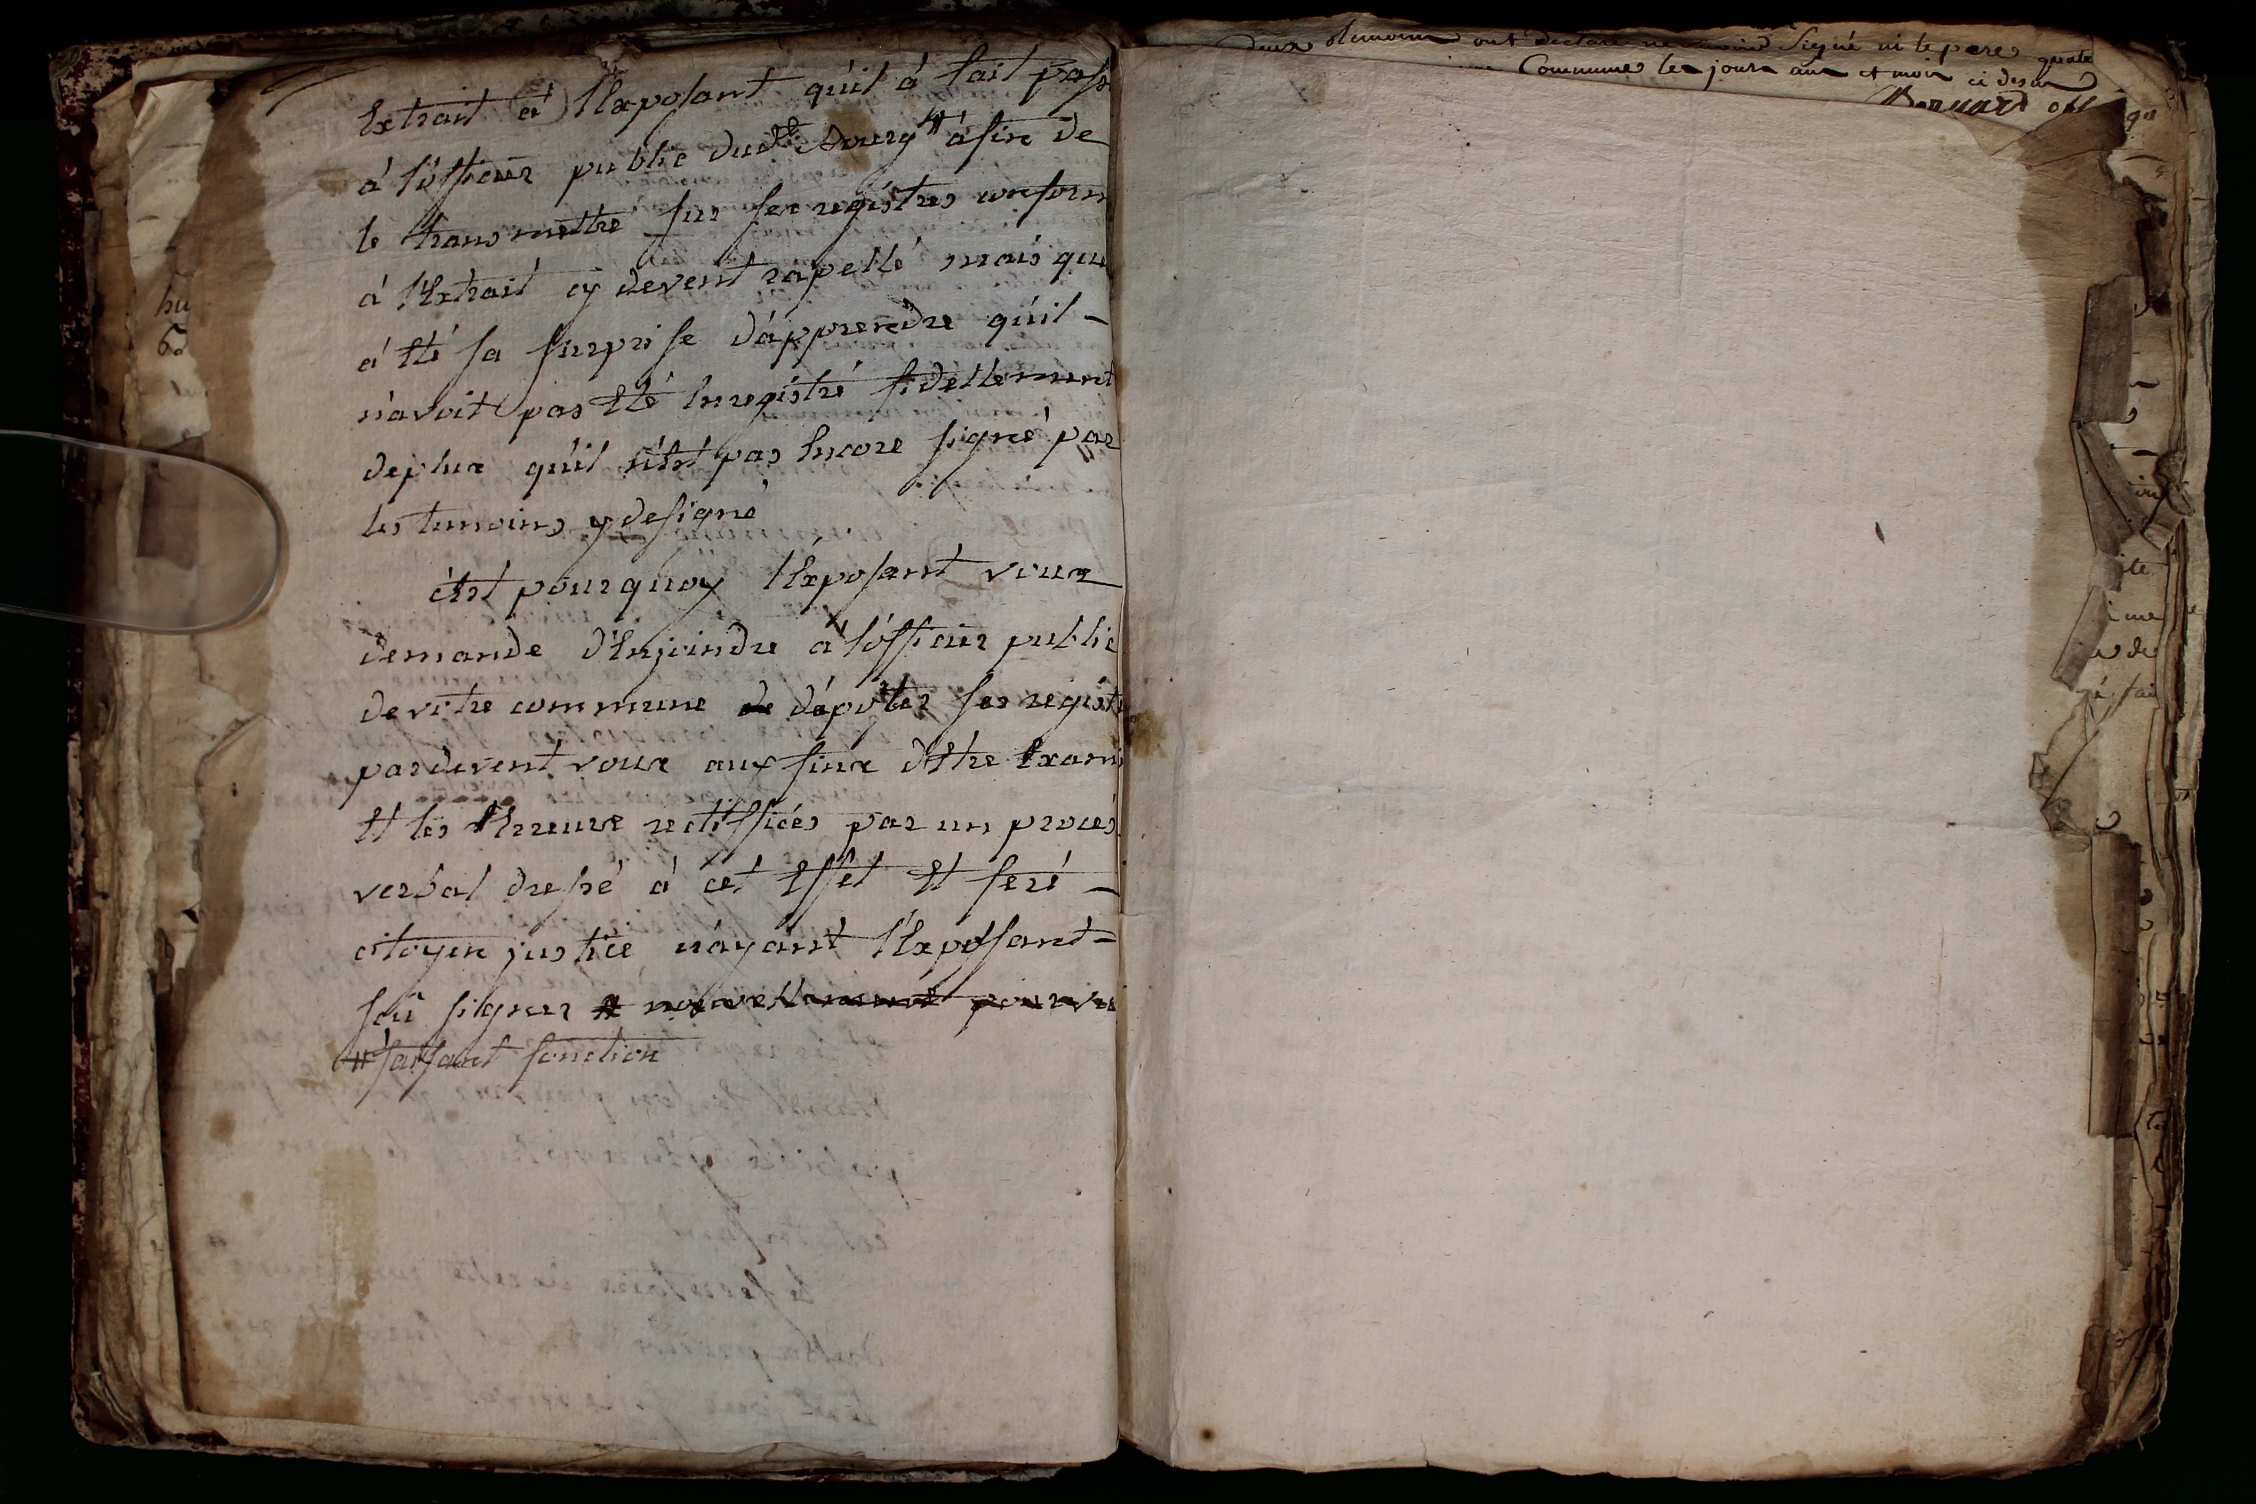 Extrait à l'Exposant qu'il á fait pass
á l'officier public dudt Bourg # áfin de
le transmettre sur ses régistres conform
á l'Extrait cy devent rapellé mais que
á Eté sa surprise d'ápprendre qu'il -
n'avoit pas Eté Enregistré fidellement
deplus qu'il n'Est pas Encore signé par
les temoins y designé
c'Est pourquoy l'Exposant vous
demande d'Enjoindre á l'officier public
de votre commune de dépoter ses regist
pardevent vous aux fins d'Etre Exami
Et les Erreurs rectiffiées par un procés
verbal dressé á cet Effet Et feré -
citoyen justice n'ayant l'Exposant -
sçû signer # nouvellement pourvu
# faisant fonction
deux temoins ont declaré ne savoir signé ni le pere
Commune les jours ans et mois ci dessu
Bernard off
hu